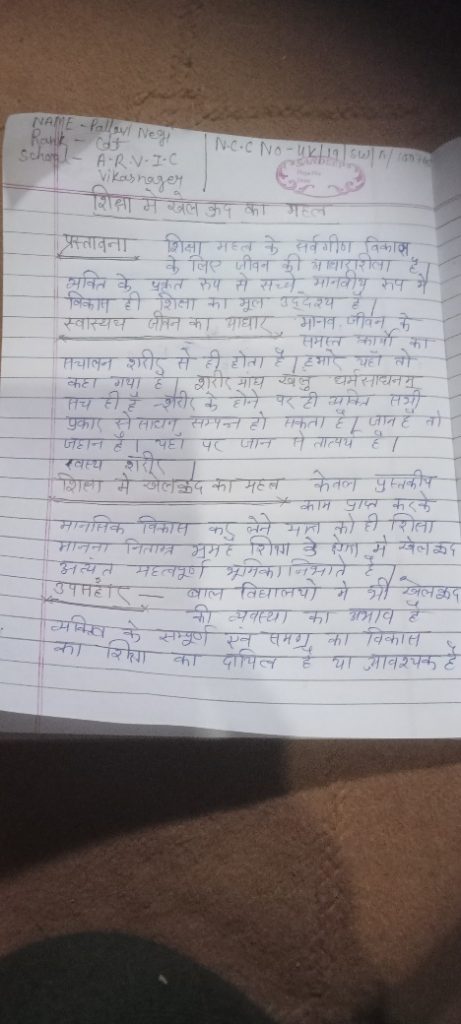 NAME - Pallavi Negi
Rank - Cdt
School - A.R.V.I.C
Vikasnager
N.C.C NO - UK/19/SW/A/
शिक्षा मे खेल कूद का महत्व
प्रस्तावना शिक्षा महत्व के सर्वगीण विकास
के लिए जीवन की आधारशिला है।
व्यक्ति के प्रकृत रूप से सच्चे मानवीय रूप में
विकास ही शिक्षा का मूल उद्देश्य है।
स्वास्यथ जीवन का आधार मानव जीवन के
समस्त कार्यो का
संचालन शरीर से ही होता है। हमारे यहाँ तो
कहा गया है। शरीर माध खलु धर्मसाधनम्
सच ही है शरीर के होने पर ही व्यक्ति सभी
प्रकार से साधन सम्पन्न हो सकता है। जान है तो
जहान है। यहाँ पर जान से तात्पर्य है।
स्वस्थ शरीर।
शिक्षा मे खेलकूद का महत्व केवल पुस्तकीय
काम प्राप्त करके
मानसिक विकास कर लेने मात्र को ही शिक्षा
मानना नितान्त भ्रमह शिक्षा के क्षेत्रा मे खेलकूद
अत्यंत महत्वपूर्ण भूमिका निभाते है।
उपसंहार - बाल विद्यालयो मे भी खेलकूद
की व्यवस्था का अभाव है
व्यक्तित्व के सम्पूर्ण एवं समग्र का विकास
का शिक्षा का दायित्व है या आवश्यक है